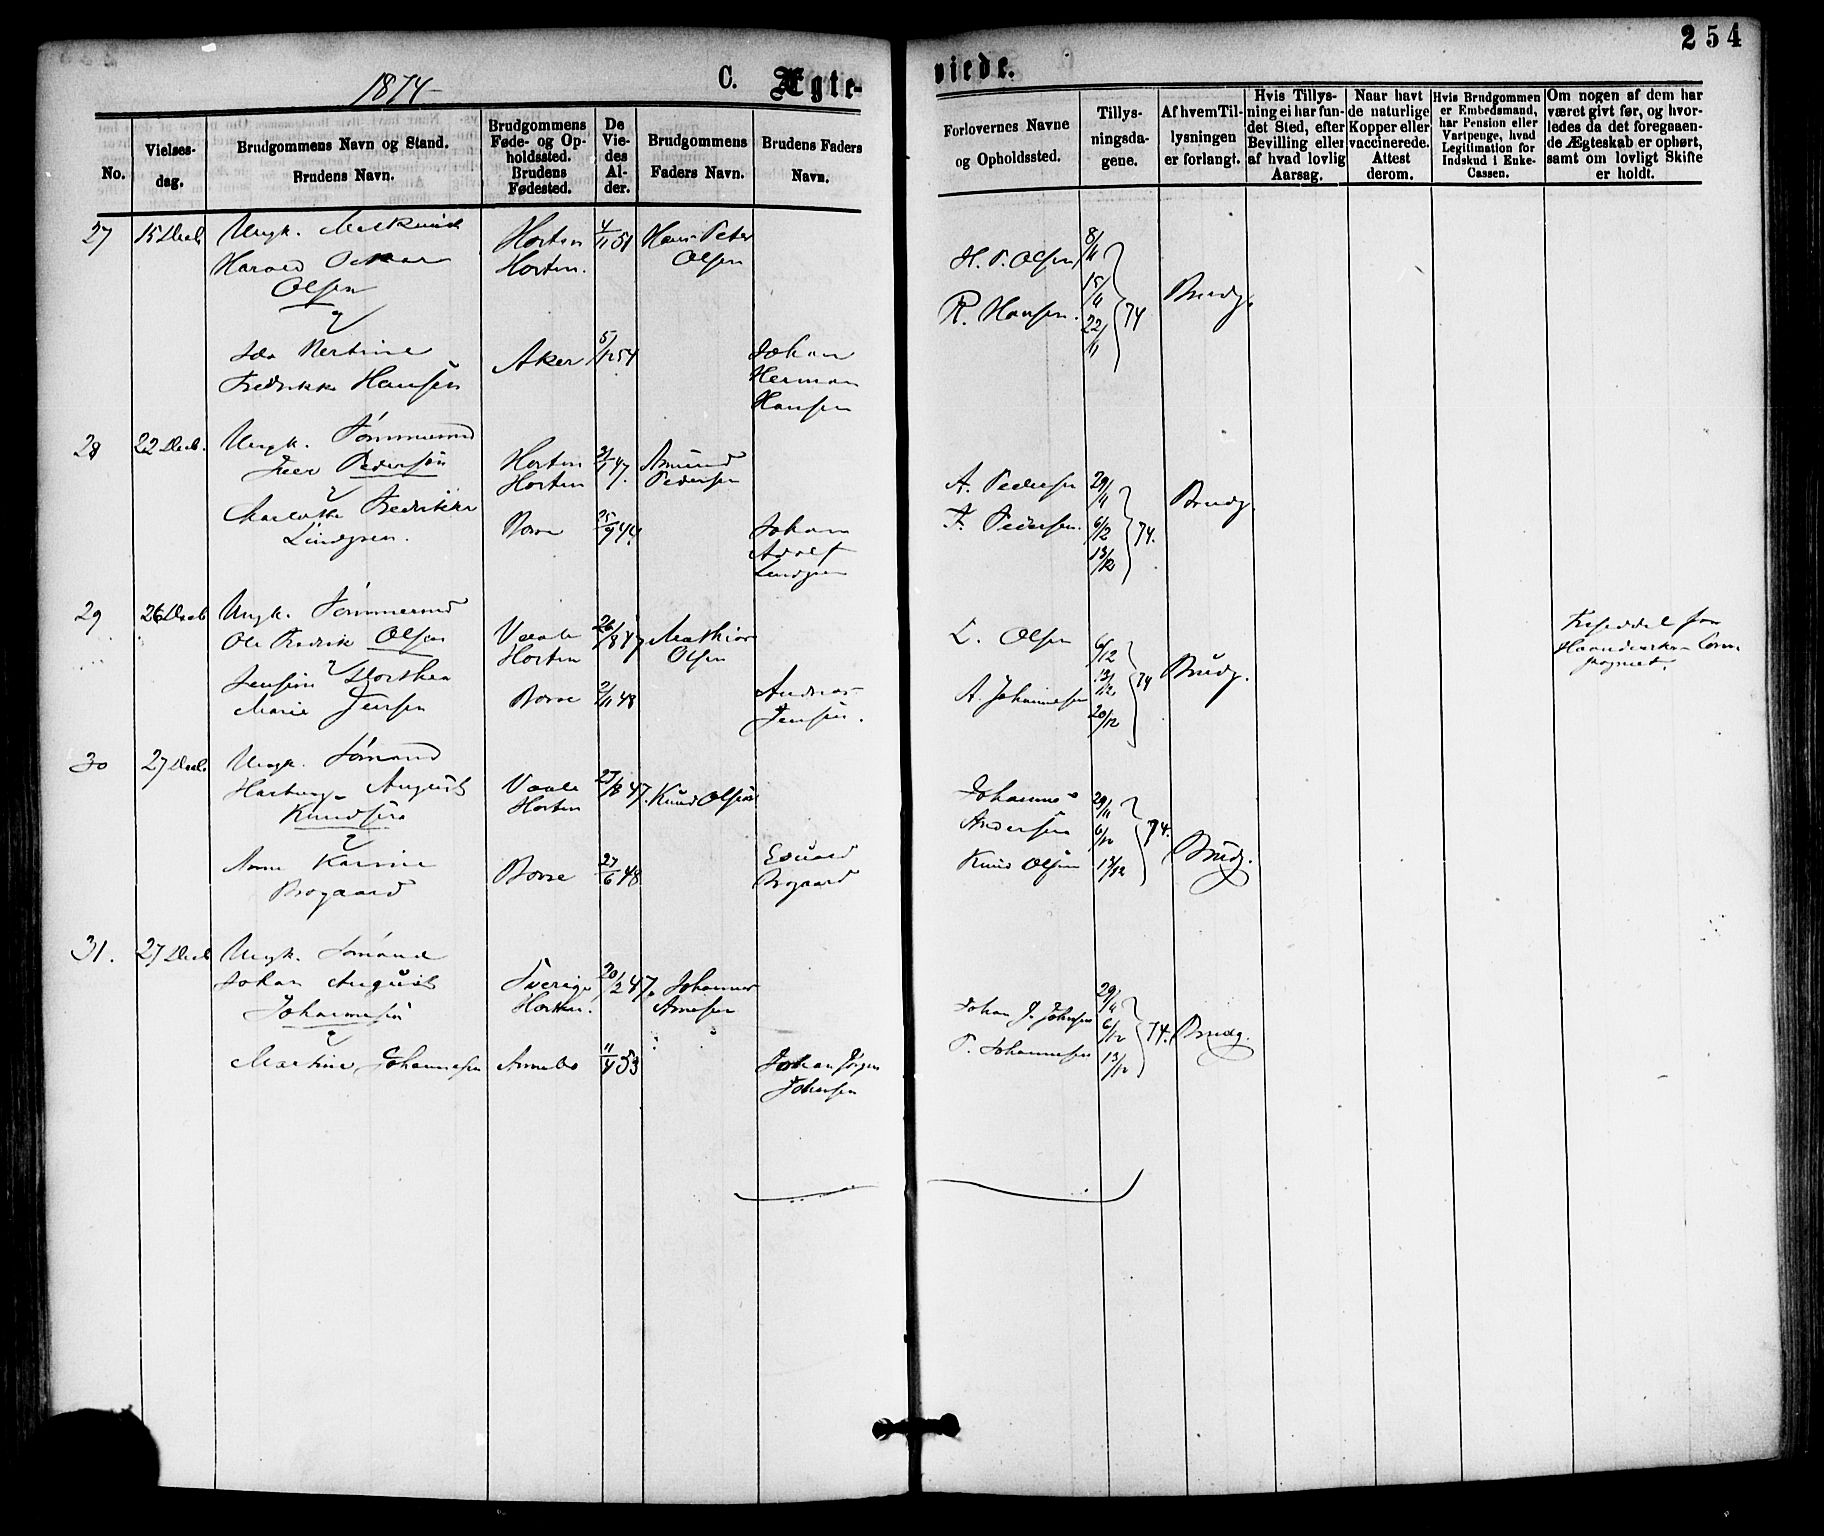 254
1874
C. Ægte-
viede.
No.
Vielses-
dag.
Brudgommens Navn og Stand.
Brudens Navn.
Brudgommens
Føde- og Op-
holdssted.
Brudens
Fødested.
De
Vie-
des
Al-
der.
Brudgommens
Faders Navn.
Brudens Faders
Navn.
Forlovernes Navne
og Opholdssted.
Tillys-
ningsda-
gene.
Af hvem Til-
lysningen
er forlangt.
Hvis Tillys-
ning ei har fun-
det Sted, efter
Bevilling eller
af hvad lovlig
Aarsag.
Naar havt
de naturlige
Kopper eller
vaccinerede.
Attest
derom.
Hvis Brudgommen
er Embedsmand,
har Pension eller
Vartpenge, hvad
Legitimation for
Indskud i Enke-
Cassen.
Om nogen af dem har
været givt før, og hvor-
ledes da det foregaaen-
de Ægteskab er ophørt,
samt om lovligt Skifte
er holdt.
27 15 Decb Ungk.
Harald Oskar
Olsen
Horten
Horten.
4/11 51
Hans Peter
Olsen
Fredrikke Hansen
Aker
5/12 54
Johan
Herman
Hansen
H. P. Olsen
R. Hansen.
8/11
15/11
22/11
74
Brudg.
28 22 Decb. Ungk. Tømmermd
Pedersen
Charlotte Fredrikke
Lindgren.
Horten
Horten
47.
Amund
Pedersen
Borre
25/9 44.
Johan
Adolf
Lindgren
A. Pedersen
F. Pedersen.
29/11
6/12
13/12
74.
Brudg.
29 26 Decb Ungk. Tømmermd
Ole Fredrik Olsen
Dorthea
Marie Jensen
Vaale
Horten
26/8 47
Mathias
Olsen
Borre
2/11 48
Andreas
Jensen.
L. Olsen
A. Johannesen
6/12
13/12
20/12
74
Brudg.
30 27 Decb Ungk. Sømand
August
Knudsen
Vaale
Horten
27/8 47.
Knud Olsen
Anne Karine
Brogaard
Borre
27/6 48
Edvard
Brogaard
Johannes
Andersen
Knud Olsen
29/11
6/12
13/12
74.
Brudg.
31. 27 Decb Ungk. Sømand
Johan August
Johannesen
Sverige
Horten.
20/2 47.
Johannes
Arnesen
Martine Johannesen
Annebo
11/4 53
Johan Jørgen
Johansen
Johan J. Johnsen
P. Johannesen
29/11
6/12
13/12
74.
Brudg.